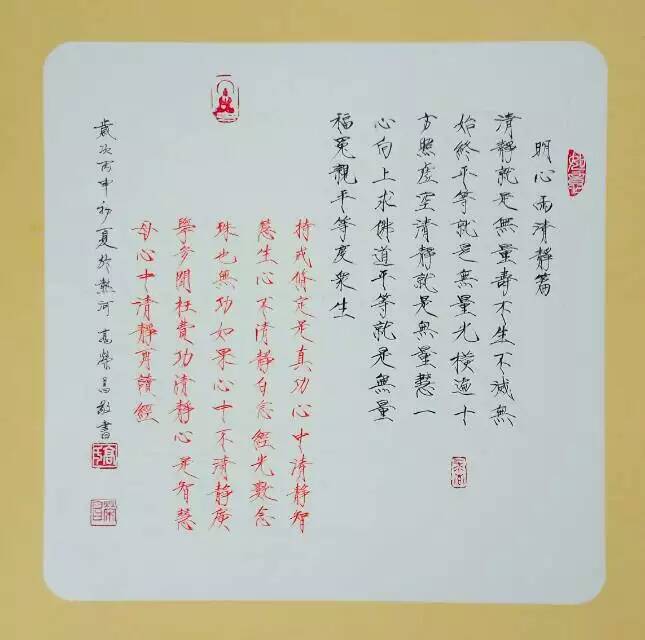 明心清靜篇
清靜就是無量壽不生不滅無
始終平等就是無量光橫遍十
方照虛空清靜就是無量慧一
心向上求佛道平等就是無量
福冤親平等度衆生
持戒修定是真功心中清靜智
慧生心不清靜白念經光數念
珠也無功如果心中不清靜廣
學多聞枉費功清靜心是智慧
母心中清靜再讀經
歲次丙申初夏於熱河 高榮昌敬書